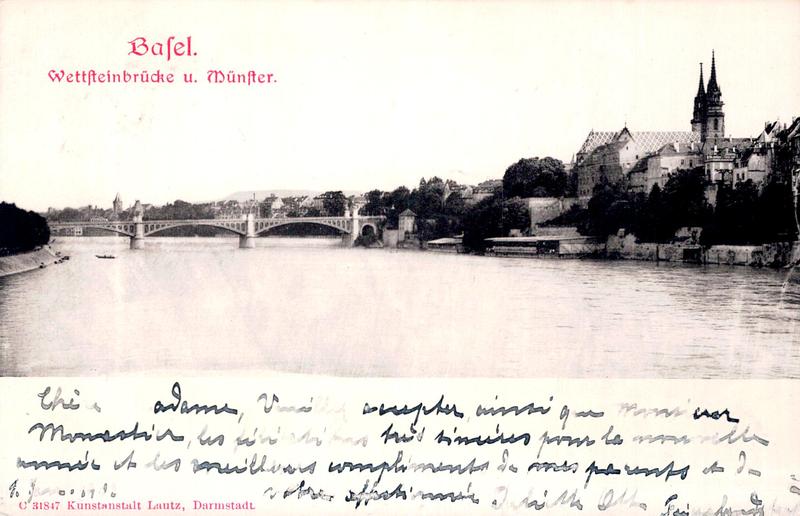 Basel.
Wettsteinbrücke u. Münster.
Chère Madame, Veuillez accepter, ainsi que Monsieur
Monastier, les félicitations très sincères pour la nouvelle
année et des meilleurs compliments de mes parents et de
votre affectionnée
C 31847 Kunstanstalt Lautz, Darmstadt.